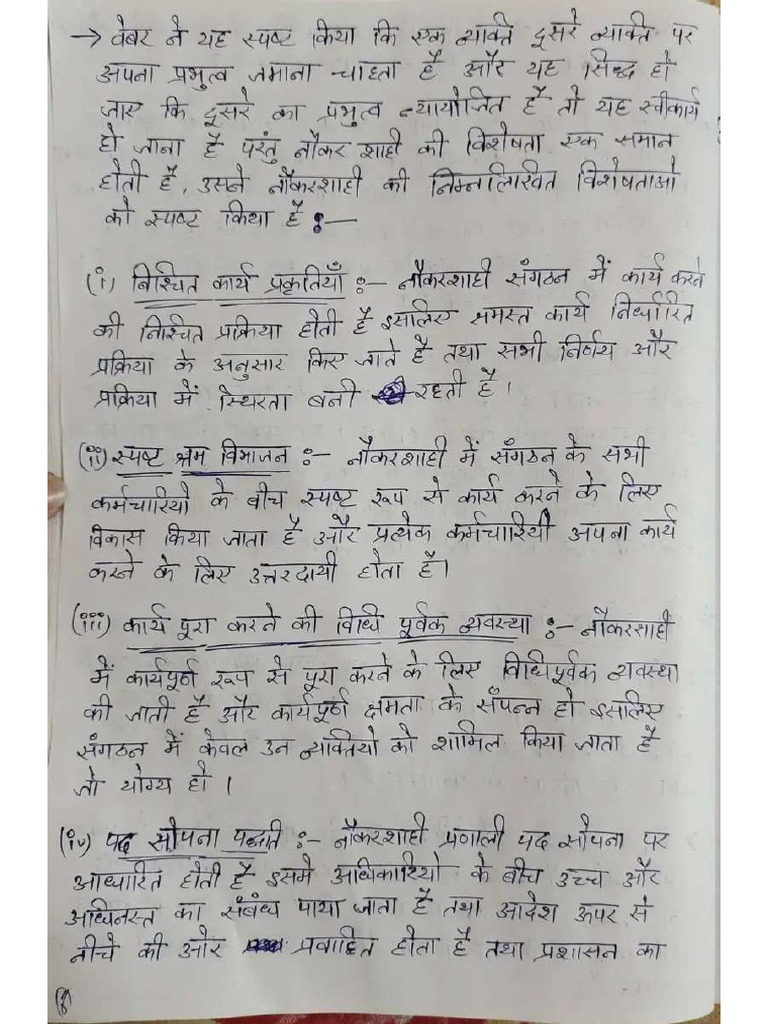 → वेबर ने यह स्पष्ट किया कि एक व्यक्ति दूसरे व्यक्ति पर
अपना प्रभुत्व जमाना चाहता है और यह सिद्ध हो
जाए कि दूसरे का प्रभुत्व न्यायोजित है तो यह स्वीकार्य
हो जाना है परंतु नौकर शाही की विशेषता एक समान
होती है, उसने नौकरशाही की निम्नलिखित विशेषताओ
को स्पष्ट किया है :—
(i) निश्चित कार्य प्रकृतियाँ :- नौकरशाही संगठन में कार्य करने
की निश्चित प्रक्रिया होती है इसलिए समस्त कार्य निर्धारित
प्रक्रिया के अनुसार किए जाते है तथा सभी निर्णय और
प्रक्रिया में स्थिरता बनी रहती है।
(ii) स्पष्ट श्रम विभाजन :- नौकरशाही में संगठन के सभी
कर्मचारियो के बीच स्पष्ट रूप से कार्य करने के लिए
विकास किया जाता है और प्रत्येक कर्मचारियी अपना कार्य
करने के लिए उत्तरदायी होता है।
(iii) कार्य पूरा करने की विधि पूर्वक व्यवस्था :- नौकरशाही
में कार्यपूर्ण रूप से पूरा करने के लिए विधिपूर्वक व्यवस्था
की जाती है और कार्यपूर्ण क्षमता के संपन्न हो इसलिए
संगठन में केवल उन व्यक्तियो को शामिल किया जाता है
जो योग्य हो।
(iv) पद सोपना पद्धति :- नौकरशाही प्रणाली पद सोपना पर
आधारित होती है इसमे अधिकारियो के बीच उच्च और
अधिनस्त का संबंध पाया जाता है तथा आदेश ऊपर से
नीचे की ओर प्रवाहित होता है तथा प्रशासन का